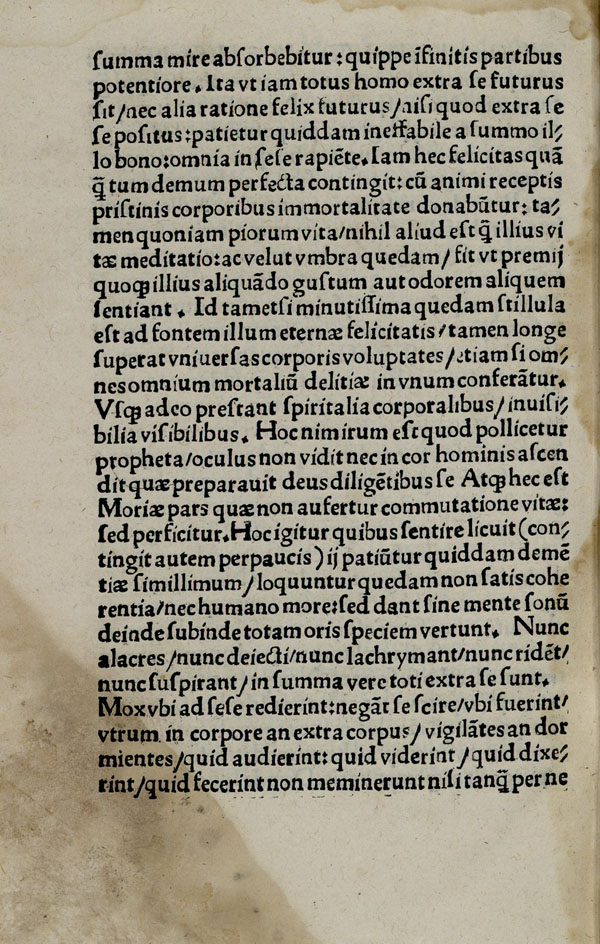 ſumma mire abſorbebitur: quippe īfinitis partibus
potentiore. Ita vt iam totus homo extra ſe futurus
ſit/nec alia ratione felix futurus/niſi quod extra ſe
ſe poſitus: patietur quiddam ineffabile a ſummo il⸗
lo bono: omnia in ſeſe rapiēte. Iam hec felicitas quā
q̄ tum demum perfecta contingit: cū animi receptis
priſtinis corporibus immortalitate donabūtur: ta⸗
men quoniam piorum vita/nihil aliud eſt q̄ illius vi
tæ meditatio: ac velut vmbra quedam/ fit vt premij
quoqꝫ illius aliquādo guſtum aut odorem aliquem
ſentiant. Id tametſi minutiſſima quedam ſtillula
eſt ad fontem illum eternæ felicitatis/tamen longe
ſuperat vniuerſas corporis voluptates/etiam ſi om⸗
nes omnium mortaliū delitiæ in vnum conferātur.
Vſqꝫ adeo preſtant ſpiritalia corporalibus/inuiſi⸗
bilia viſibilibus. Hoc nimirum eſt quod pollicetur
propheta/oculus non vidit nec in cor hominis aſcen
dit quæ preparauit deus diligētibus ſe Atqꝫ hec eſt
Moriæ pars quæ non aufertur commutatione vitæ:
ſed perficitur. Hoc igitur quibus ſentire licuit (con⸗
tingit autem perpaucis) ij patiūtur quiddam demē
tiæ ſimillimum/loquuntur quedam non ſatis cohe
rentia/nec humano more: ſed dant ſine mente ſonū
deinde ſubinde totam oris ſpeciem vertunt. Nunc
alacres/nunc deiecti/nunc lachrymant/nunc ridēt/
nunc ſuſpirant/ in ſumma vere toti extra ſe ſunt.
Mox vbi ad ſeſe redierint: negāt ſe ſcire/vbi fuerint/
vtrum in corpore an extra corpus/ vigilātes an dor
mientes/quid audierint: quid viderint/quid dixe⸗
rint/quid fecerint non meminerunt niſi tanq̄ per ne